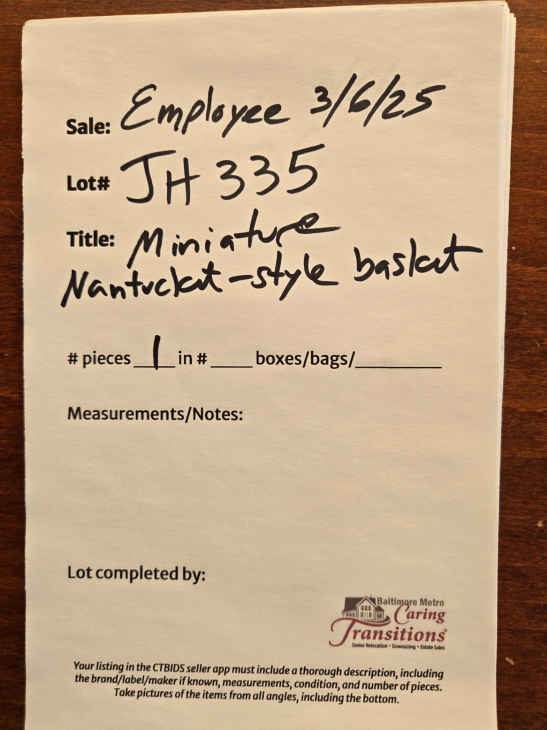 Sale: Employee 3/6/25
Lot# JH 335
Title: Miniature
Nantucket-style basket
# pieces 1 in # ____ boxes/bags/________
Measurements/Notes:
Lot completed by:
Baltimore Metro
Caring
Transitions
Senior Relocation • Downsizing • Estate Sales
Your listing in the CTBIDS seller app must include a thorough description, including
the brand/label/maker if known, measurements, condition, and number of pieces.
Take pictures of the items from all angles, including the bottom.